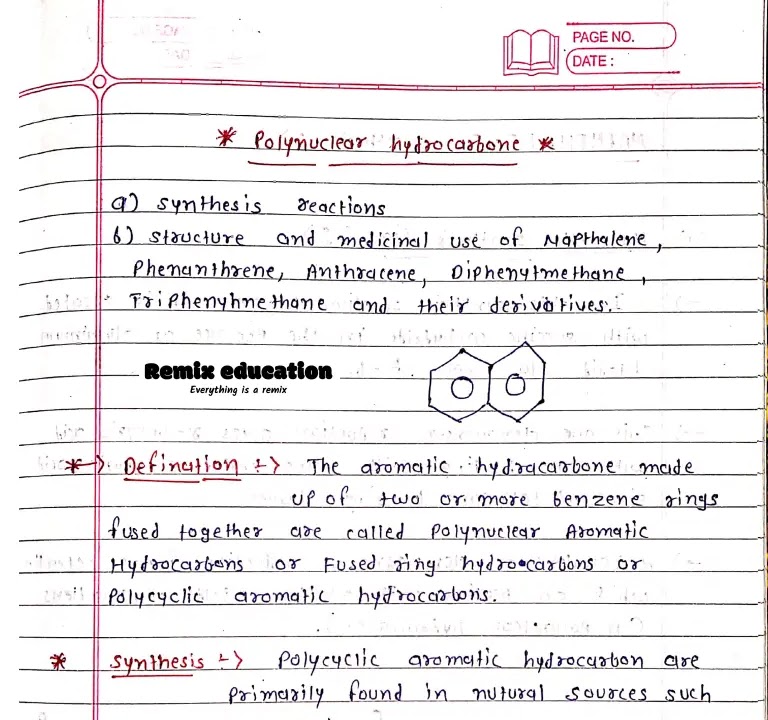 PAGE NO.
DATE :
* Polynuclear hydrocarbone *
a) synthesis reactions
b) structure and medicinal use of Napthalene,
Phenanthrene, Anthracene, Diphenytmethane,
Triphenyhnethane and their derivatives.
Remix education
Everything is a remix
*→ Defination :-> The aromatic hydracarbone made
up of two or more benzene rings
fused together are called Polynuclear Aromatic
Hydrocarbons or Fused ring hydrocarbons or
Polycyclic aromatic hydrocarbons.
* synthesis :-> Polycyclic aromatic hydrocarbon are
primarily found in nutural sources such